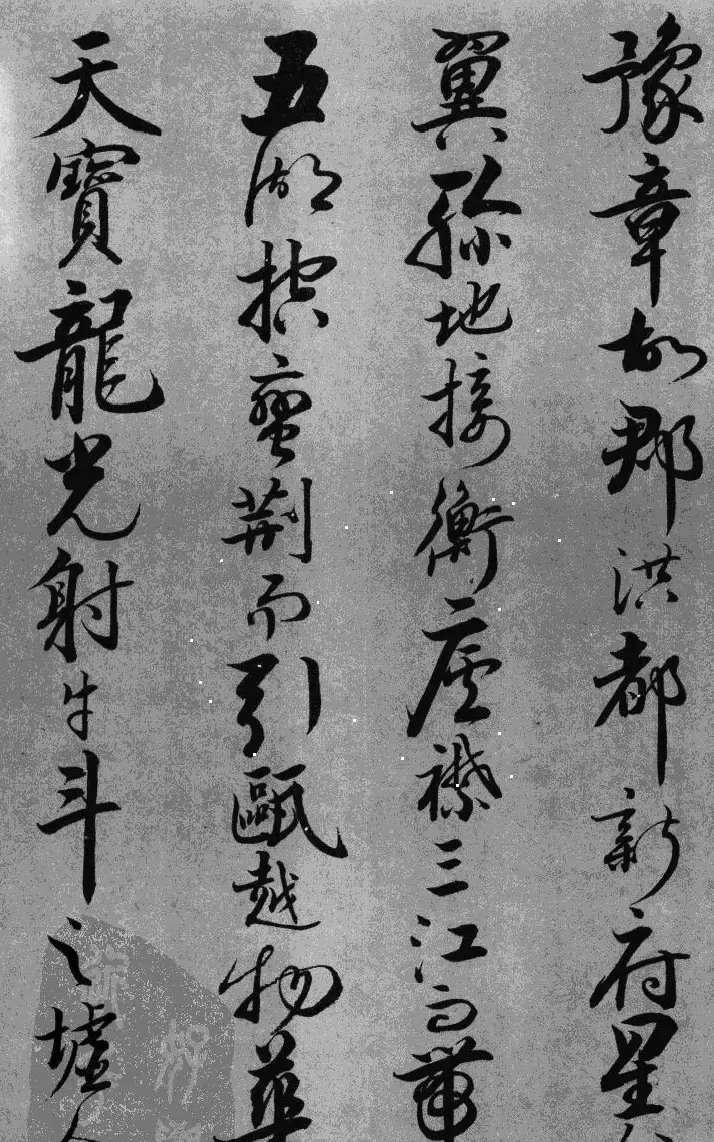 豫章故郡洪都新府星
翼軫地接衡廬襟三江而帶
五湖控蠻荊而引甌越物華
天寶龍光射牛斗之墟